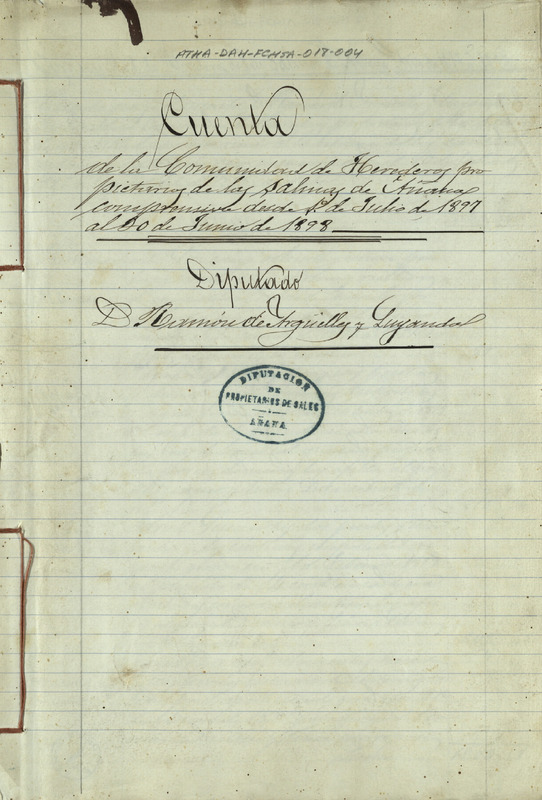 ATHA-DAH-FCHSA-018-004
Cuenta
de la Comunidad de Herederos pro
pietarios de las Salinas de Añana
comprensiva desde 1º de Julio de 1897
al 30 de Junio de 1898
Diputado
D Ramon de Arguelles y Luyando
DIPUTACION
DE
PROPIETARIOS DE SALES
AÑANA